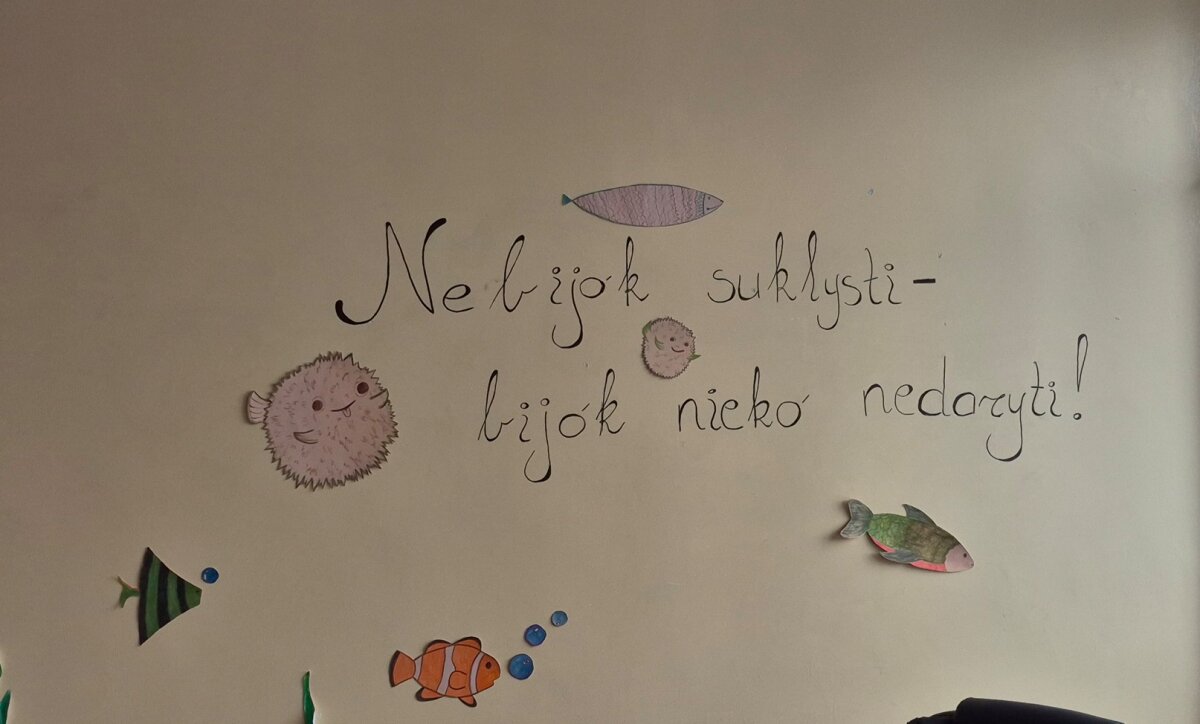 Nebijok suklysti-
bijok nieko nedaryti!